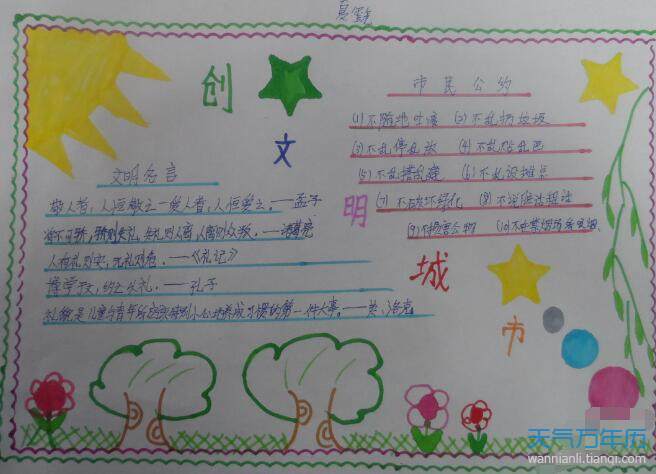 创
文
明
城
市
市民公约
(1)不随地吐痰 (2)不乱扔垃圾
(3)不乱停乱放 (4)不乱贴乱画
(5)不乱搭乱建 (6)不乱设摊点
(7)不破坏绿化 (8)不说粗话脏话
(9)不损害公物 (10)不在禁烟场所吸烟
文明名言
敬人者,人恒敬之,爱人者,人恒爱之。——孟子
人有礼则安,无礼则危。——《礼记》
博学于文,约之以礼。——孔子
礼貌是儿童与青年所应该特别小心地养成习惯的第一件大事。——英、洛克
天气万年历
wannianli.tianqi.com